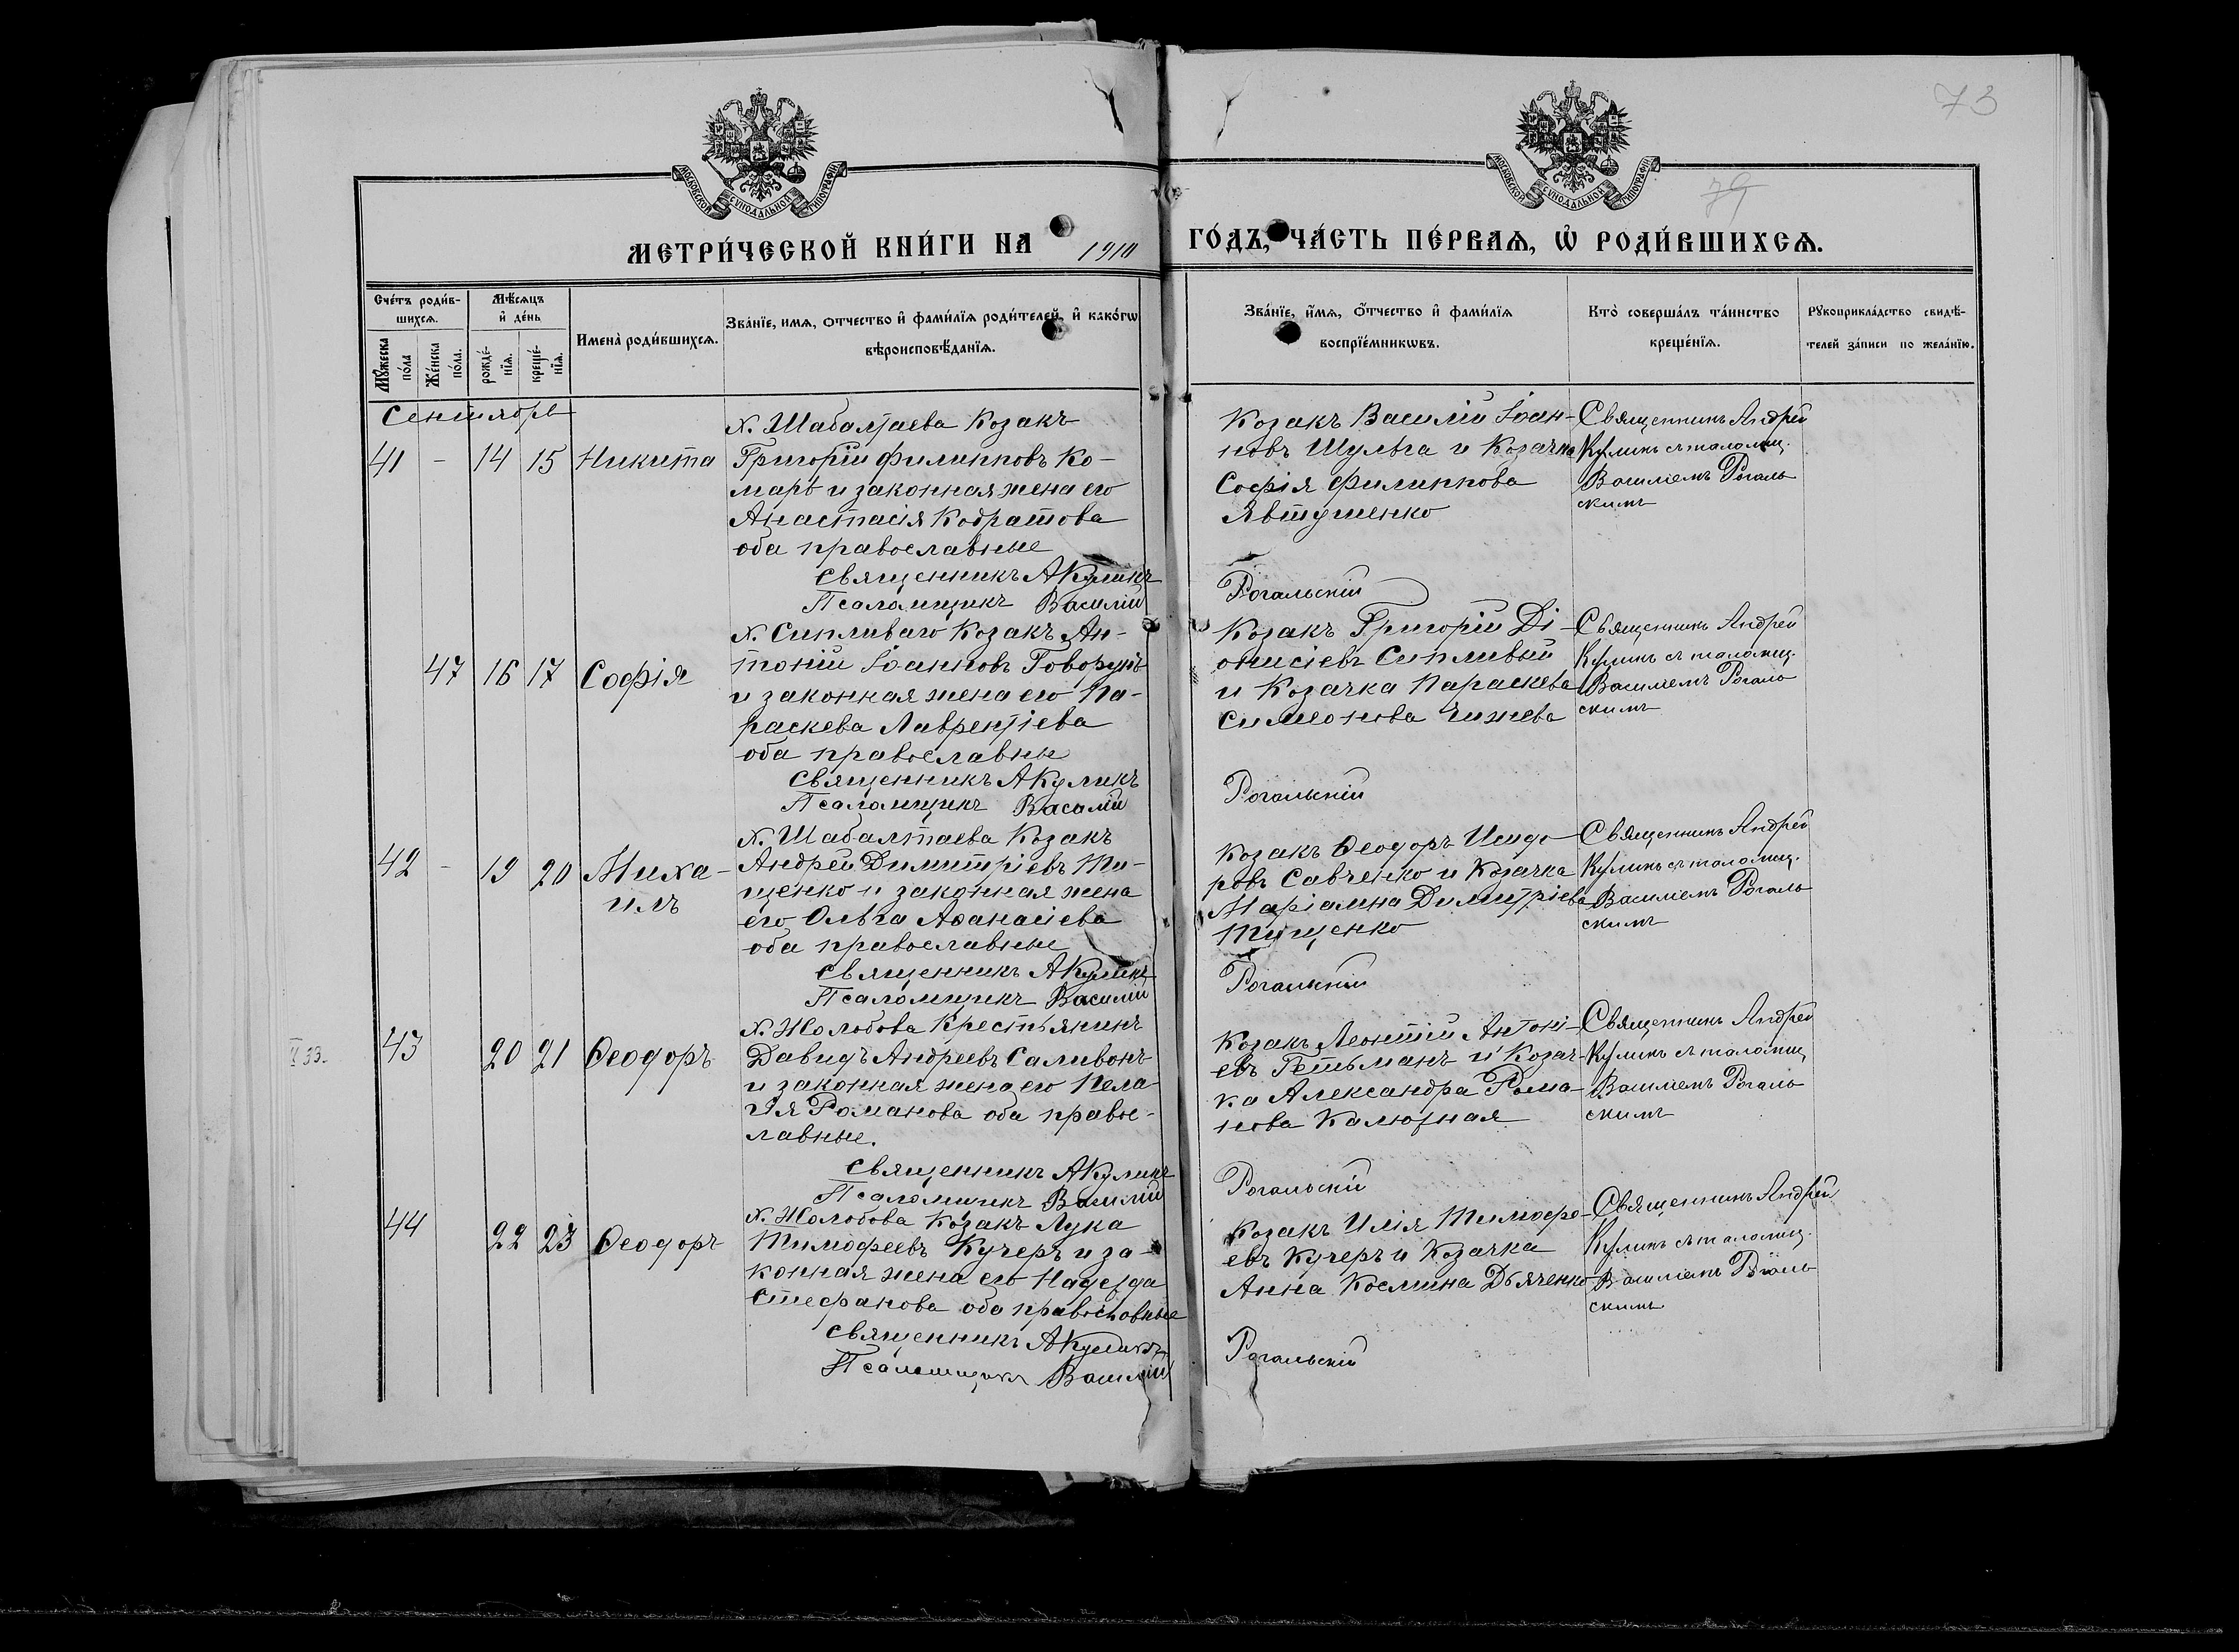 73
79
МОСКОВСКОЙ СѴНОДАЛЬНОЙ ТИПОГРАФІИ
МОСКОВСКОЙ СѴНОДАЛЬНОЙ ТИПОГРАФІИ
МЕТРИ́ЧЕСКОЙ КНИ́ГИ НА 1910 ГО́ДЪ, ЧА́СТЬ ПЕ́РВАѦ, Ѡ҆ РОДИ́ВШИХСѦ.
Сче́тъ роди́в-
шихсѧ.
Мꙋ́жеска по́ла
Же́нска по́ла.
Мѣ́сѧцъ
и҆ де́нь
рожде́-
нїѧ.
креще́-
нїѧ.
Имена̀ роди́вшихсѧ.
Зва́нїе, имѧ, отчество и҆ фами́лїѧ роди́телей, и҆ како́гѡ
вѣроисповѣ́данїѧ.
Зва́нїе, и҆́мѧ, ѻ҆́тчество и҆ фами́лїѧ
воспрїе́мникѡвъ.
Кто̀ соверша́лъ та́инство
креще́нїѧ.
Рꙋкоприкла́дство свидѣ́-
телей за́писи по жела́нїю.
Сентябрь
41 - 14 15 Никита
х. Шабалтаева Козакъ
Григорій Филипповъ Ко-
маръ и законная жена его
Анастасія Кодратова
оба православные
Священникъ А Куликъ
Псаломщикъ Василій Рогальскій
Козакъ Василій Іоан-
новъ Шульга и Козачка
Софія Филиппова
Явтушенко
Священникъ Андрей
Куликъ съ псаломщ.
Василіемъ Рогаль
скимъ
47 16 17 Софія
х. Сипливаго Козакъ Ан-
тоній Іоанновъ Говорунъ
и законная жена его Па-
раскева Лаврентіева
оба православны
Священникъ А Куликъ
Псаломщикъ Василій Рогальскій
Козакъ Григорій Ді-
онисіевъ Сипливый
и Козачка Параскева
Симеонова Чижева
Священникъ Андрей
Куликъ съ псаломщ.
Василіемъ Рогаль
скимъ
42 - 19 20 Миха-
илъ
х. Шабалтаева Козакъ
Андрей Димитріевъ Ти-
щенко и законная жена
его Ольга Аѳанасіева
оба православные
Священникъ А Куликъ
Псаломщикъ Василій Рогальскій
Козакъ Ѳеодоръ Исидо-
ровъ Савченко и Козачка
Маріамна Димитріева
Тищенко
Священникъ Андрей
Куликъ съ псаломщ.
Василіемъ Рогаль
скимъ
43 20 21 Ѳеодоръ
х. Жолобова Крестьянинъ
Давидъ Андреевъ Саливонъ
и законная жена его Пела-
гія Романова оба правос-
лавные.
Священникъ А Куликъ
Псаломщикъ Василій Рогальскій
Козакъ Леонтій Антоні-
евъ Гетьманъ и Козач-
ка Александра Рома-
нова Калюжная
Священникъ Андрей
Куликъ съ псаломщ
Василіемъ Рогаль
скимъ
44 22 23 Ѳеодоръ
х. Жолобова Козакъ Лука
Тимофеевъ Кучеръ и за-
конная жена его Надежда
Стефанова оба православные
Священникъ А Куликъ
Псаломщикъ Василій Рогальскій
Козакъ Илія Тимофе-
евъ Кучеръ и Козачка
Анна Космина Дьяченко
Священникъ Андрей
Куликъ съ псаломщ.
Василіемъ Рогаль
скимъ